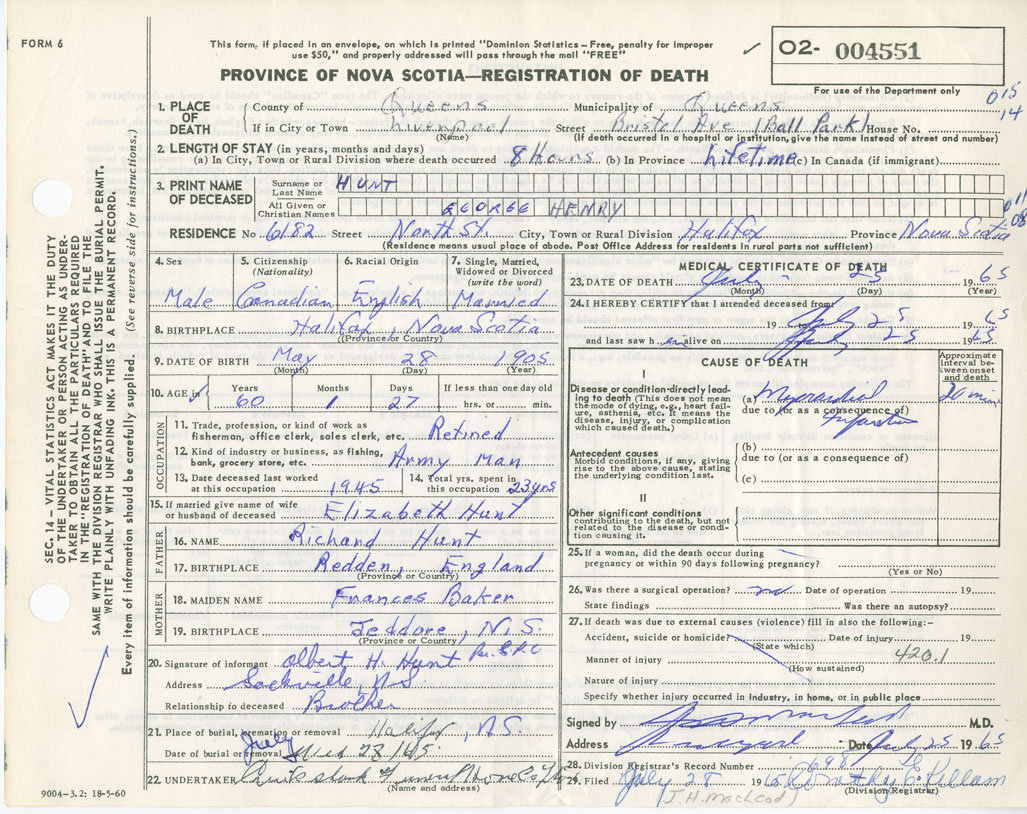 FORM 6
This form, if placed in an envelope, on which is printed "Dominion Statistics – Free, penalty for improper
use $50," and properly addressed will pass through the mail "FREE"
✓ 02- 004551
PROVINCE OF NOVA SCOTIA—REGISTRATION OF DEATH
For use of the Department only
015
14
1. PLACE OF DEATH County of Queens Municipality of Queens
If in City or Town Liverpool Street Bristol Ave (Ball Park) House No.
(Name) (If death occurred in a hospital or institution, give the name instead of street and number)
2. LENGTH OF STAY (in years, months and days)
(a) In City, Town or Rural Division where death occurred 8 Hours (b) In Province Lifetime (c) In Canada (if immigrant)
3. PRINT NAME OF DECEASED Surname or Last Name HUNT
All Given or Christian Names GEORGE HENRY
011
08
RESIDENCE No. 6182 Street North St. City, Town or Rural Division Halifax Province Nova Scotia
(Residence means usual place of abode. Post Office Address for residents in rural parts not sufficient)
SEC. 14 – VITAL STATISTICS ACT MAKES IT THE DUTY
OF THE UNDERTAKER OR PERSON ACTING AS UNDER-
TAKER TO OBTAIN ALL THE PARTICULARS REQUIRED
IN THE "REGISTRATION OF DEATH" AND TO FILE THE
SAME WITH THE DIVISION REGISTRAR WHO SHALL ISSUE THE BURIAL PERMIT.
WRITE PLAINLY WITH UNFADING INK–THIS IS A PERMANENT RECORD.
Every item of information should be carefully supplied. (See reverse side for instructions.)
4. Sex 5. Citizenship (Nationality) 6. Racial Origin 7. Single, Married, Widowed or Divorced (write the word)
Male Canadian English Married
8. BIRTHPLACE Halifax, Nova Scotia
(Province or Country)
9. DATE OF BIRTH May 28 1905
(Month) (Day) (Year)
10. AGE Years 60 Months 1 Days 27 If less than one day old hrs. or min.
OCCUPATION
11. Trade, profession, or kind of work as
fisherman, office clerk, sales clerk, etc. Retired
12. Kind of industry or business, as fishing,
bank, grocery store, etc. Army Man
13. Date deceased last worked at this occupation 1945 14. Total yrs. spent in this occupation 23 yrs
15. If married give name of wife
or husband of deceased Elizabeth Hunt
FATHER
16. NAME Richard Hunt
17. BIRTHPLACE Redden, England
(Province or Country)
MOTHER
18. MAIDEN NAME Frances Baker
19. BIRTHPLACE Jeddore, N.S.
(Province or Country)
20. Signature of informant Albert H. Hunt Per
Address Sackville, N.S.
Relationship to deceased Brother
21. Place of burial, cremation or removal Halifax, N.S.
Date of burial or removal July Wed 28/65
22. UNDERTAKER
(Name and address)
9004–3.2: 18-5-60
MEDICAL CERTIFICATE OF DEATH
23. DATE OF DEATH July 25 1965
(Month) (Day) (Year)
24. I HEREBY CERTIFY that I attended deceased from
19 to July 25 1965
and last saw h im alive on July 25 1965
CAUSE OF DEATH
Approximate interval between onset and death
I
Disease or condition directly lead-
ing to death (This does not mean
the mode of dying, e.g., heart fail-
ure, asthenia, etc. It means the
disease, injury, or complication
which caused death.)
(a) Myocardial 20 min
due to (or as a consequence of)
Infarction
Antecedent causes
Morbid conditions, if any, giving
rise to the above cause, stating
the underlying condition last.
(b)
due to (or as a consequence of)
(c)
II
Other significant conditions
contributing to the death, but not
related to the disease or condi-
tion causing it.
25. If a woman, did the death occur during
pregnancy or within 90 days following pregnancy?
(Yes or No)
26. Was there a surgical operation? no Date of operation 19
State findings Was there an autopsy?
27. If death was due to external causes (violence) fill in also the following:–
Accident, suicide or homicide? Date of injury 19
(State which)
Manner of injury 420.1
(How sustained)
Nature of injury
Specify whether injury occurred in industry, in home, or in public place
Signed by M.D.
Address Liverpool Date July 25 1965
28. Division Registrar's Record Number 698
29. Filed July 28 1965 Dorothy E. Killam
(J.H. MacLeod) (Division Registrar)